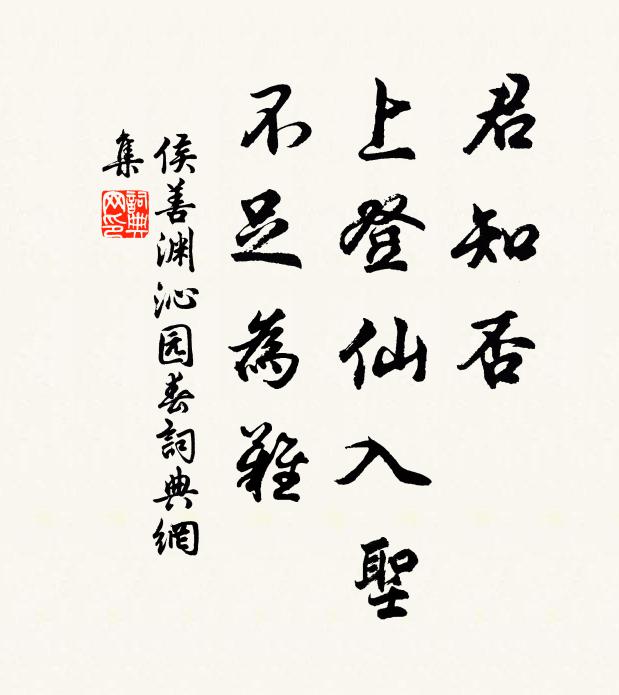 君知否
上登仙入聖
不足為難
侯善渊沁园春詞典網
集
詞典
网印